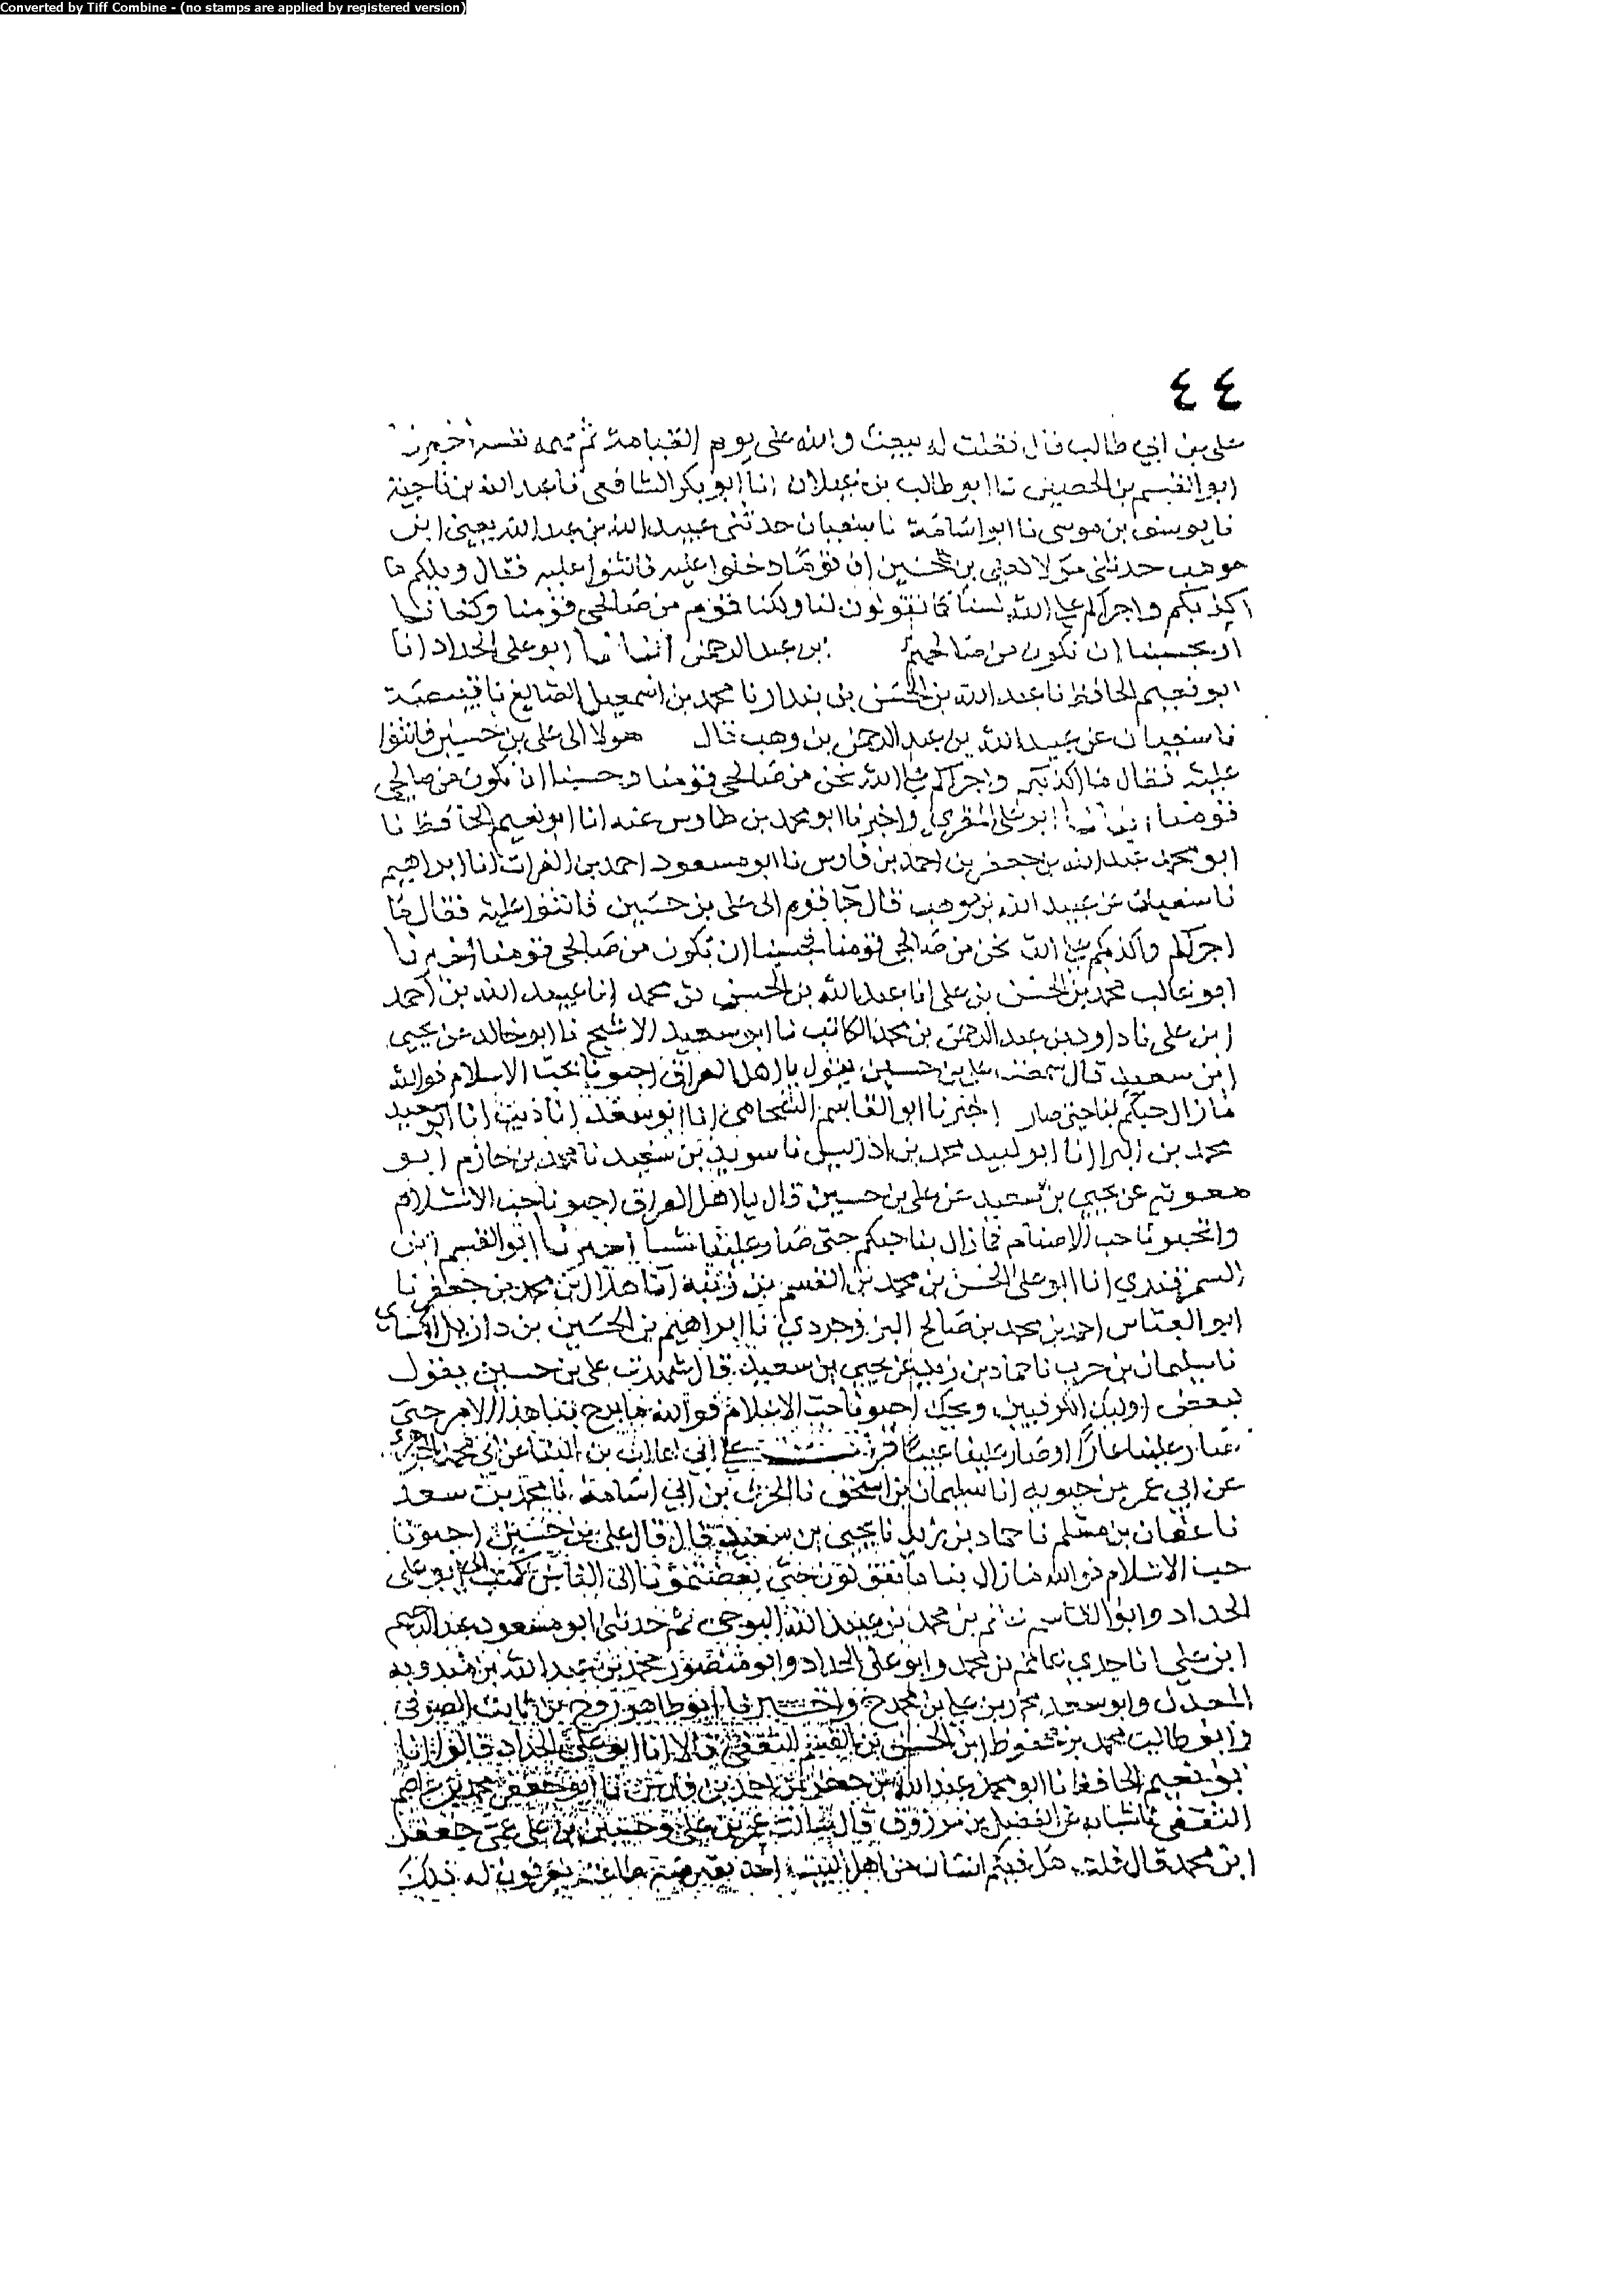 Converted by Tiff Combine - (no stamps are applied by registered version)
٤٤
علي بن ابي طالب قال فقلت له يبعث والله على يوم القيامة ثم نفسه اخبرنا
ابو القسم بن الحصين نا ابو طالب بن غيلان انا ابو بكر الشافعي نا عبد الله بن ناجية
نا يوسف بن موسى نا ابو اسامة نا سفيان حدثني عبيد الله بن عبد الله يعني ابن
موهب حدثني مولا لعلي بن الحسين ان قوما دخلوا عليه فاثنوا عليه فقال ويلكم ما
اكذبكم واجراكم على الله لسنا كما تقولون لنا ولكنا قوم من صالحي قومنا وكفانا
او بحسبنا ان نكون من صالحيهم بن عبد الرحمن انبانا ابو علي الحداد انا
ابو نعيم الحافظ نا عبد الله بن الحسن بن بندار نا محمد بن اسمعيل الصايغ نا قبيصة
نا سفيان عن عبيد الله بن عبد الرحمن بن وهب قال هولا الى علي بن حسين فاثنوا
عليه فقال ما اكذبكم واجراكم على الله نحن من صالحي قومنا وحسبنا ان نكون من صالحي
قومنا انبانا ابو علي المقري واخبرنا ابو محمد بن طاوس عنه انا ابو نعيم الحافظ نا
ابو محمد عبد الله بن جعفر بن احمد بن فارس نا ابو مسعود احمد بن الفرات انا ابراهيم
نا سفيان عن عبيد الله بن موهب قال جا قوم الى علي بن حسين فاثنوا عليه فقال ما
اجراكم واكذبكم على الله نحن من صالحي قومنا فحسبنا ان نكون من صالحي قومنا اخبرنا
ابو غالب محمد بن الحسن بن علي انا عبد الله بن الحسن بن محمد انا عبيد الله بن احمد
ابن علي نا داود بن عبد الرحمن بن محمد الكاتب نا ابو سعيد الاشج نا ابو خالد عن يحيى
ابن سعيد قال سمعت علي بن حسين يقول يا اهل العراق احبونا بحب الاسلام فوالله
ما زال حبكم بنا حتى صار اخبرنا ابو القاسم الشحامي انا ابو سعد انا انا ابو سعيد
محمد بن انا ابو لبيد محمد بن ادريس نا سويد بن سعيد نا محمد بن خازم ابو
معوية عن يحيى بن سعيد عن علي بن حسين قال يا اهل العراق احبونا حب الاسلام
ولا تحبونا حب الاصنام فما زال بنا حبكم حتى صار علينا شينا اخبرنا ابو القسم ابن
السمرقندي انا ابو علي الحسن بن محمد بن القسم بن زينة انا هلال بن محمد بن جعفر نا
ابو العباس احمد بن محمد بن صالح البروجردي نا ابراهيم بن الحسين بن دازيل الكساي
نا سليمان بن حرب نا حماد بن زيد عن يحيى بن سعيد قال شهدت علي بن حسين يقول
لبعض اوليك الكوفيين ويحك احبونا حب الاسلام فوالله ما برح بنا هذا الامر حتى
صار علينا عارا او صار علينا عيبا قرات على ابي غالب بن البنا عن ابي محمد الجوهري
عن ابي عمر بن حيويه انا سليمان بن اسحق نا الحرث بن ابي اسامة نا محمد بن سعد
نا عفان بن مسلم نا حماد بن زيد نا يحيى بن سعيد قال قال علي بن حسين احبونا
حب الاسلام فوالله ما زال بنا ما تقولون حتى بغضتمونا الى الناس كتب الي ابو علي
الحداد وابو القاسم غانم بن محمد بن عبيد الله البرجي ثم حدثني ابو مسعود عبد الرحيم
ابن علي انا جدي غانم بن محمد وابو علي الحداد وابو منصور محمد بن عبد الله بن مندويه
المعدل وابو سعد محمد بن علي بن محمد ح واخبرنا ابو طاهر روح بن ثابت الصوفي
وابو طالب محمد بن محفوظ ابن الحسن بن القسم الثقفي قالا انا ابو علي الحداد قالوا انا
ابو نعيم الحافظ نا ابو محمد عبد الله بن جعفر بن احمد بن فارس نا ابو جعفر محمد بن عاصم
الثقفي نا شبابة عن الفضيل بن مرزوق قال سالت عمر بن علي وحسين بن علي عمي جعفر
ابن محمد قال قلت هل فيكم انسان من اهل البيت احد مفترضة طاعته تعرفون له ذلك